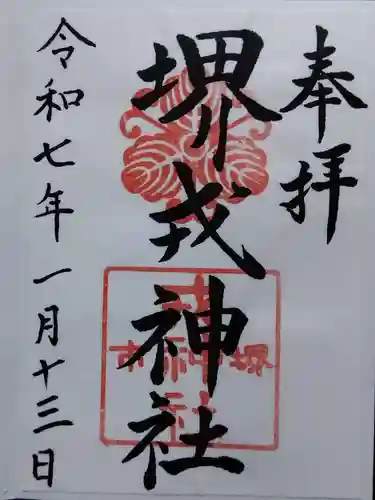 奉拝
堺戎神社
令和七年一月十三日